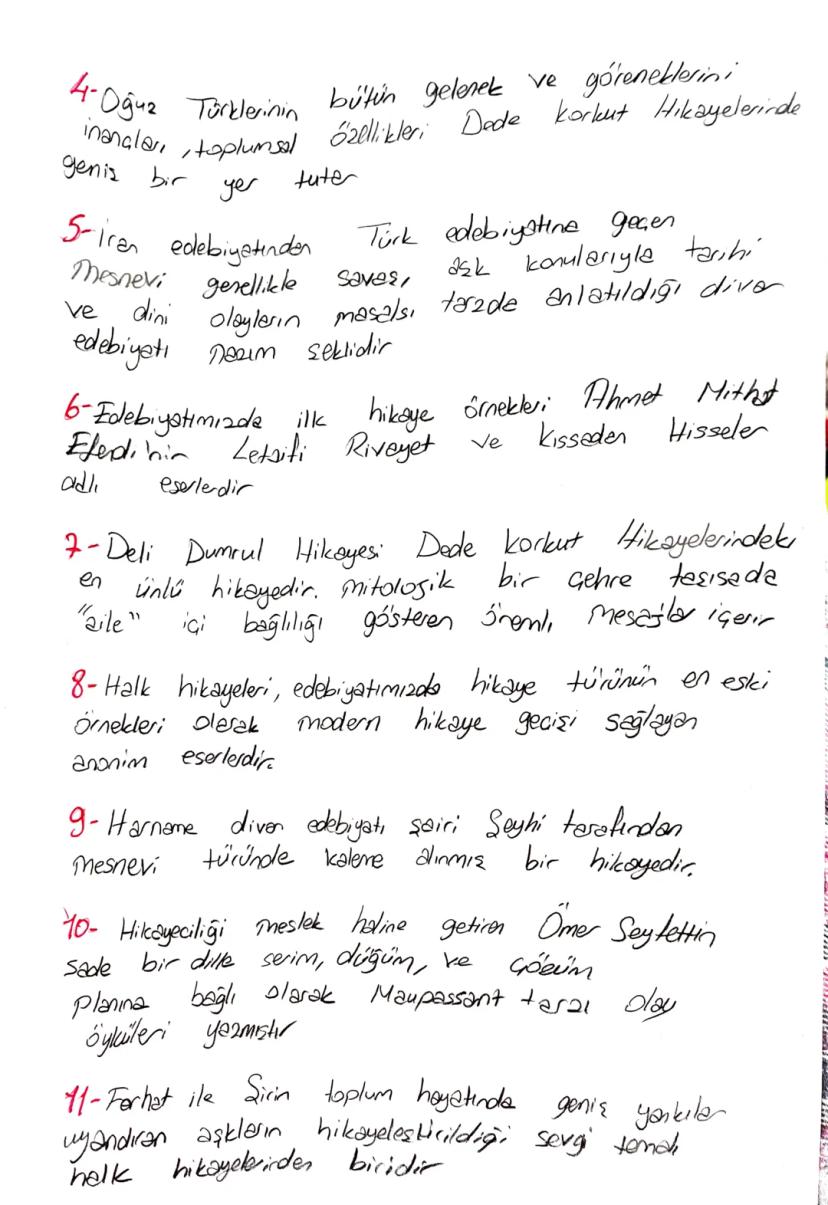 4- Oğuz Türklerinin bütün gelenek ve göreneklerini
inançları, toplumsal özellikleri Dede korkut Hikayelerinde
geniş bir yer tutar
5- İran edebiyatından Türk edebiyatına geçen
Mesnevi genellikle savaş, aşk konularıyla tarihi
ve dini olayların masalsı tarzda anlatıldığı divan
edebiyatı nazım şeklidir
6- Edebiyatımızda ilk hikaye örnekleri Ahmet Mithat
Efendi'nin Letaifi Rivayet ve Kıssadan Hisseler
adlı eserlerdir
7- Deli Dumrul Hikayesi Dede korkut Hikayelerindeki
en ünlü hikayedir. mitolojik bir çehre taşısada
"aile" içi bağlılığı gösteren önemli mesajlar içerir
8- Halk hikayeleri, edebiyatımızda hikaye türünün en eski
örnekleri olarak modern hikaye geçişi sağlayan
anonim eserlerdir.
9- Harname divan edebiyatı şairi Şeyhi tarafından
mesnevi türünde kaleme alınmış bir hikayedir.
10- Hikayeciliği meslek haline getiren Ömer Seyfettin
sade bir dille serim, düğüm, ve çözüm
planına bağlı olarak Maupassant tarzı olay
öyküleri yazmıştır
11- Ferhat ile Şirin toplum hayatında geniş yankılar
uyandıran aşkların hikayeleştirildiği sevgi temalı
halk hikayelerinden biridir